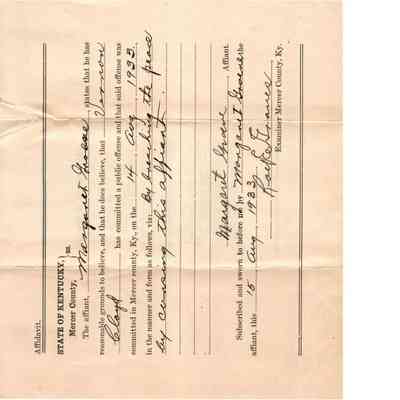 Affidavit.
STATE OF KENTUCKY,
Mercer County, } ss.
The affiant, Margaret Groose states that he has
reasonable grounds to believe, and that he does believe, that Vernon
Cloyd has committed a public offense and that said offense was
committed in Mercer county, Ky., on the 14 Aug 1933.
in the manner and form as follows, viz: By breaching the peace
by cursing this affiant.
Margaret Affiant.
Subscribed and sworn to before me by Margaret the
affiant, this 15 Aug 1933
Examiner Mercer County, Ky.